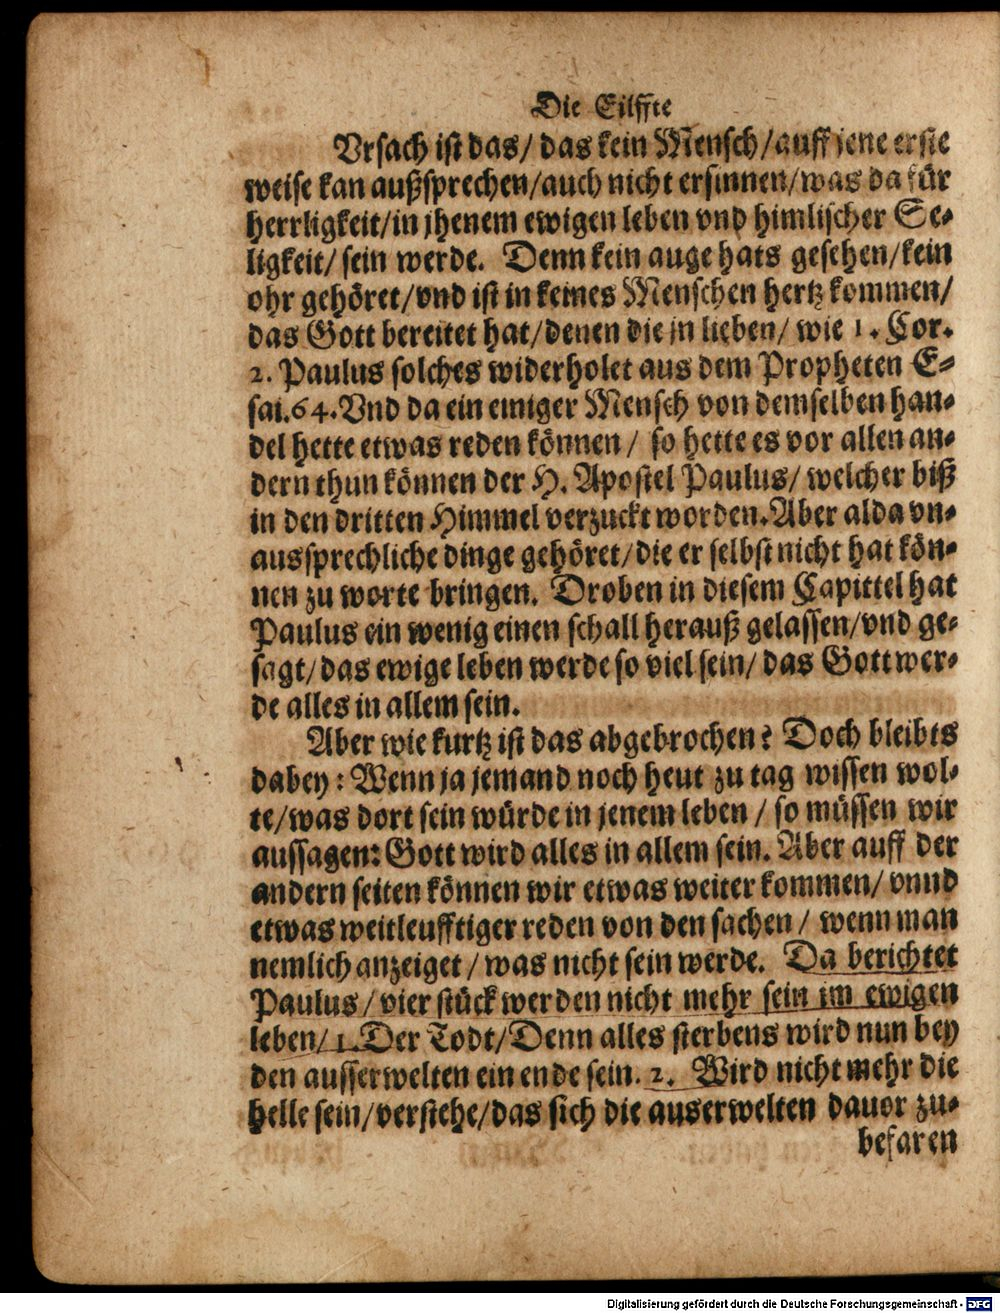 Die Eilffte
Vrsach ist das/ das kein Mensch/auff jene erste
weise kan außsprechen/auch nicht ersinnen/was da für
herrligkeit/in jhenem ewigen leben vnd himlischer Se-
ligkeit/ sein werde. Denn kein auge hats gesehen/kein
ohr gehöret/vnd ist in keines Menschen hertz kommen/
das Gott bereitet hat/denen die jn lieben/ wie 1. Cor.
2. Paulus solches widerholet aus dem Propheten E-
sai.64.Vnd da ein einiger Mensch von demselben han-
del hette etwas reden können/ so hette es vor allen an-
dern thun können der H. Apostel Paulus/ welcher biß
in den dritten Himmel verzuckt worden.Aber alda vn-
aussprechliche dinge gehöret/die er selbst nicht hat kön-
nen zu worte bringen. Droben in diesem Capittel hat
Paulus ein wenig einen schall herauß gelassen/vnd ge-
sagt/das ewige leben werde so viel sein/ das Gott wer-
de alles in allem sein.
Aber wie kurtz ist das abgebrochen? Doch bleibts
dabey: Wenn ja jemand noch heut zu tag wissen wol-
te/was dort sein würde in jenem leben/ so müssen wir
aussagen: Gott wird alles in allem sein. Aber auff der
andern seiten können wir etwas weiter kommen/ vnnd
etwas weitleufftiger reden von den sachen/ wenn man
nemlich anzeiget/ was nicht sein werde. Da berichtet
Paulus/vier stück werden nicht mehr sein im ewigen
leben/ 1. Der Todt/Denn alles sterbens wird nun bey
den ausserwelten ein ende sein. 2. Wird nicht mehr die
helle sein/verstehe/das sich die auserwelten dauor zu-
befaren
Digitalisierung gefördert durch die Deutsche Forschungsgemeinschaft - DFG